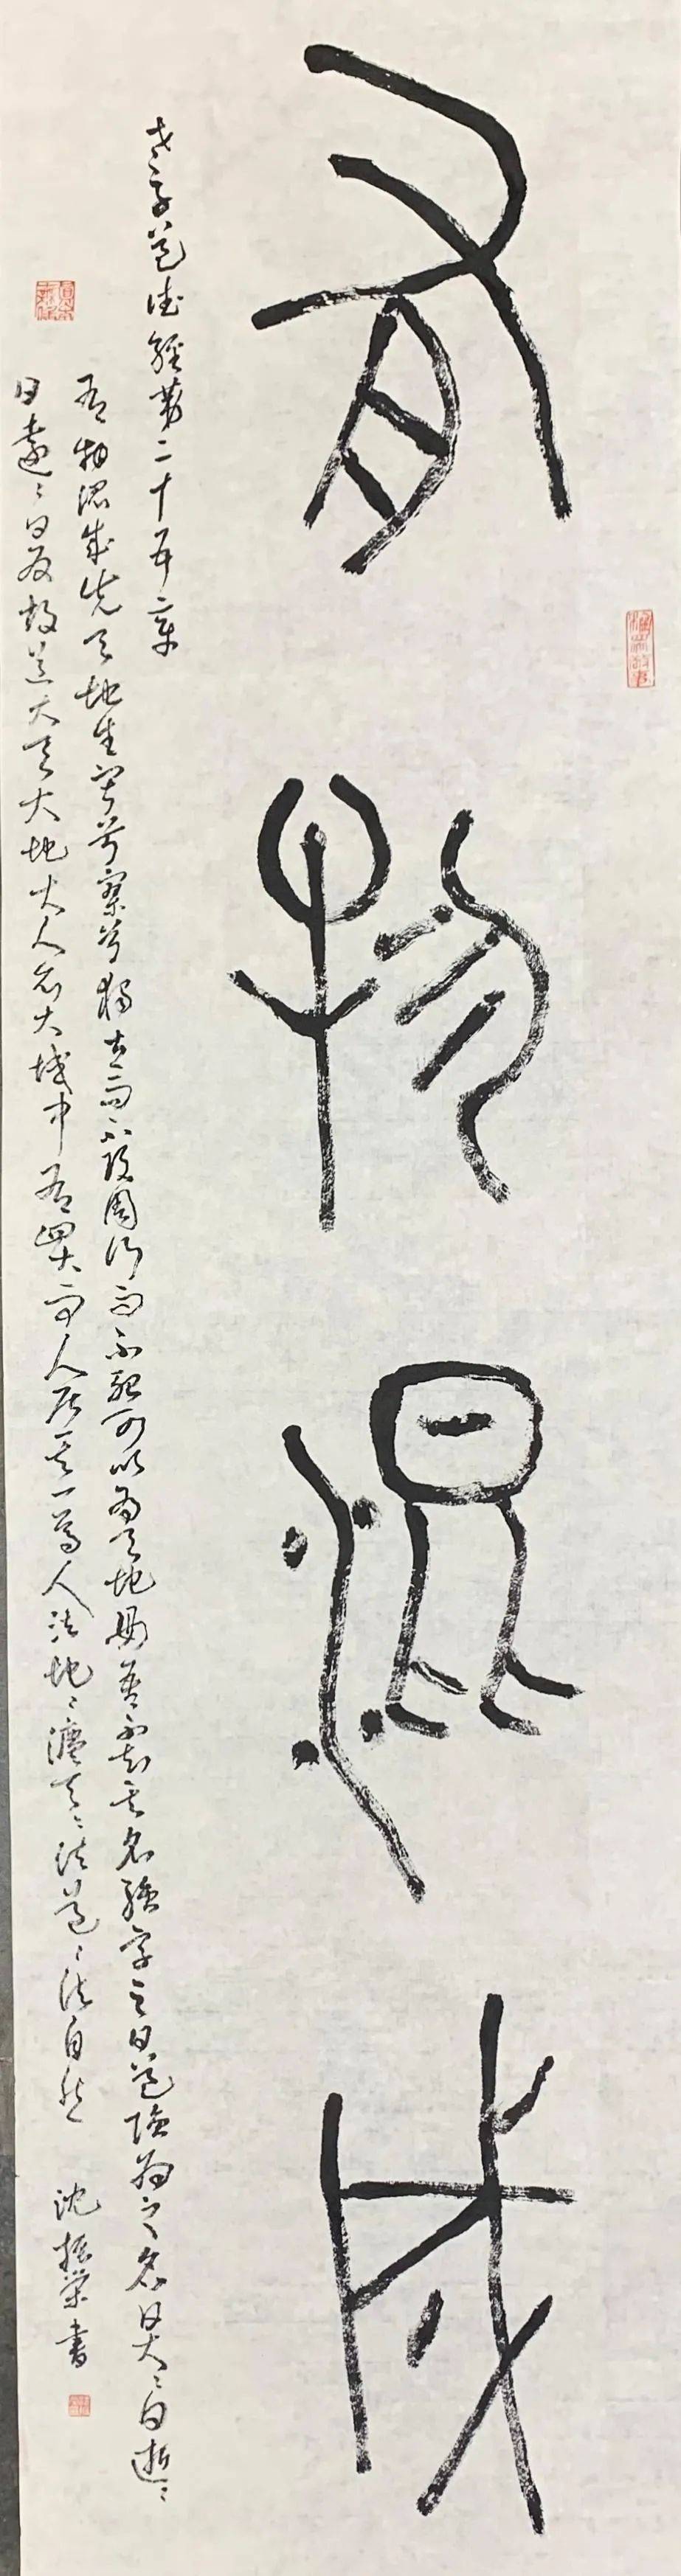 有物混成
老子道德經第二十五章
有物混成先天地生寂兮寥兮獨立而不改周行而不殆可以為天地母吾不知其名強字之曰道強為之名曰大〻曰逝〻
曰遠〻曰反故道大天大地大人亦大域中有四大而人居其一焉人法地〻法天〻法道〻法自然
沈振榮書